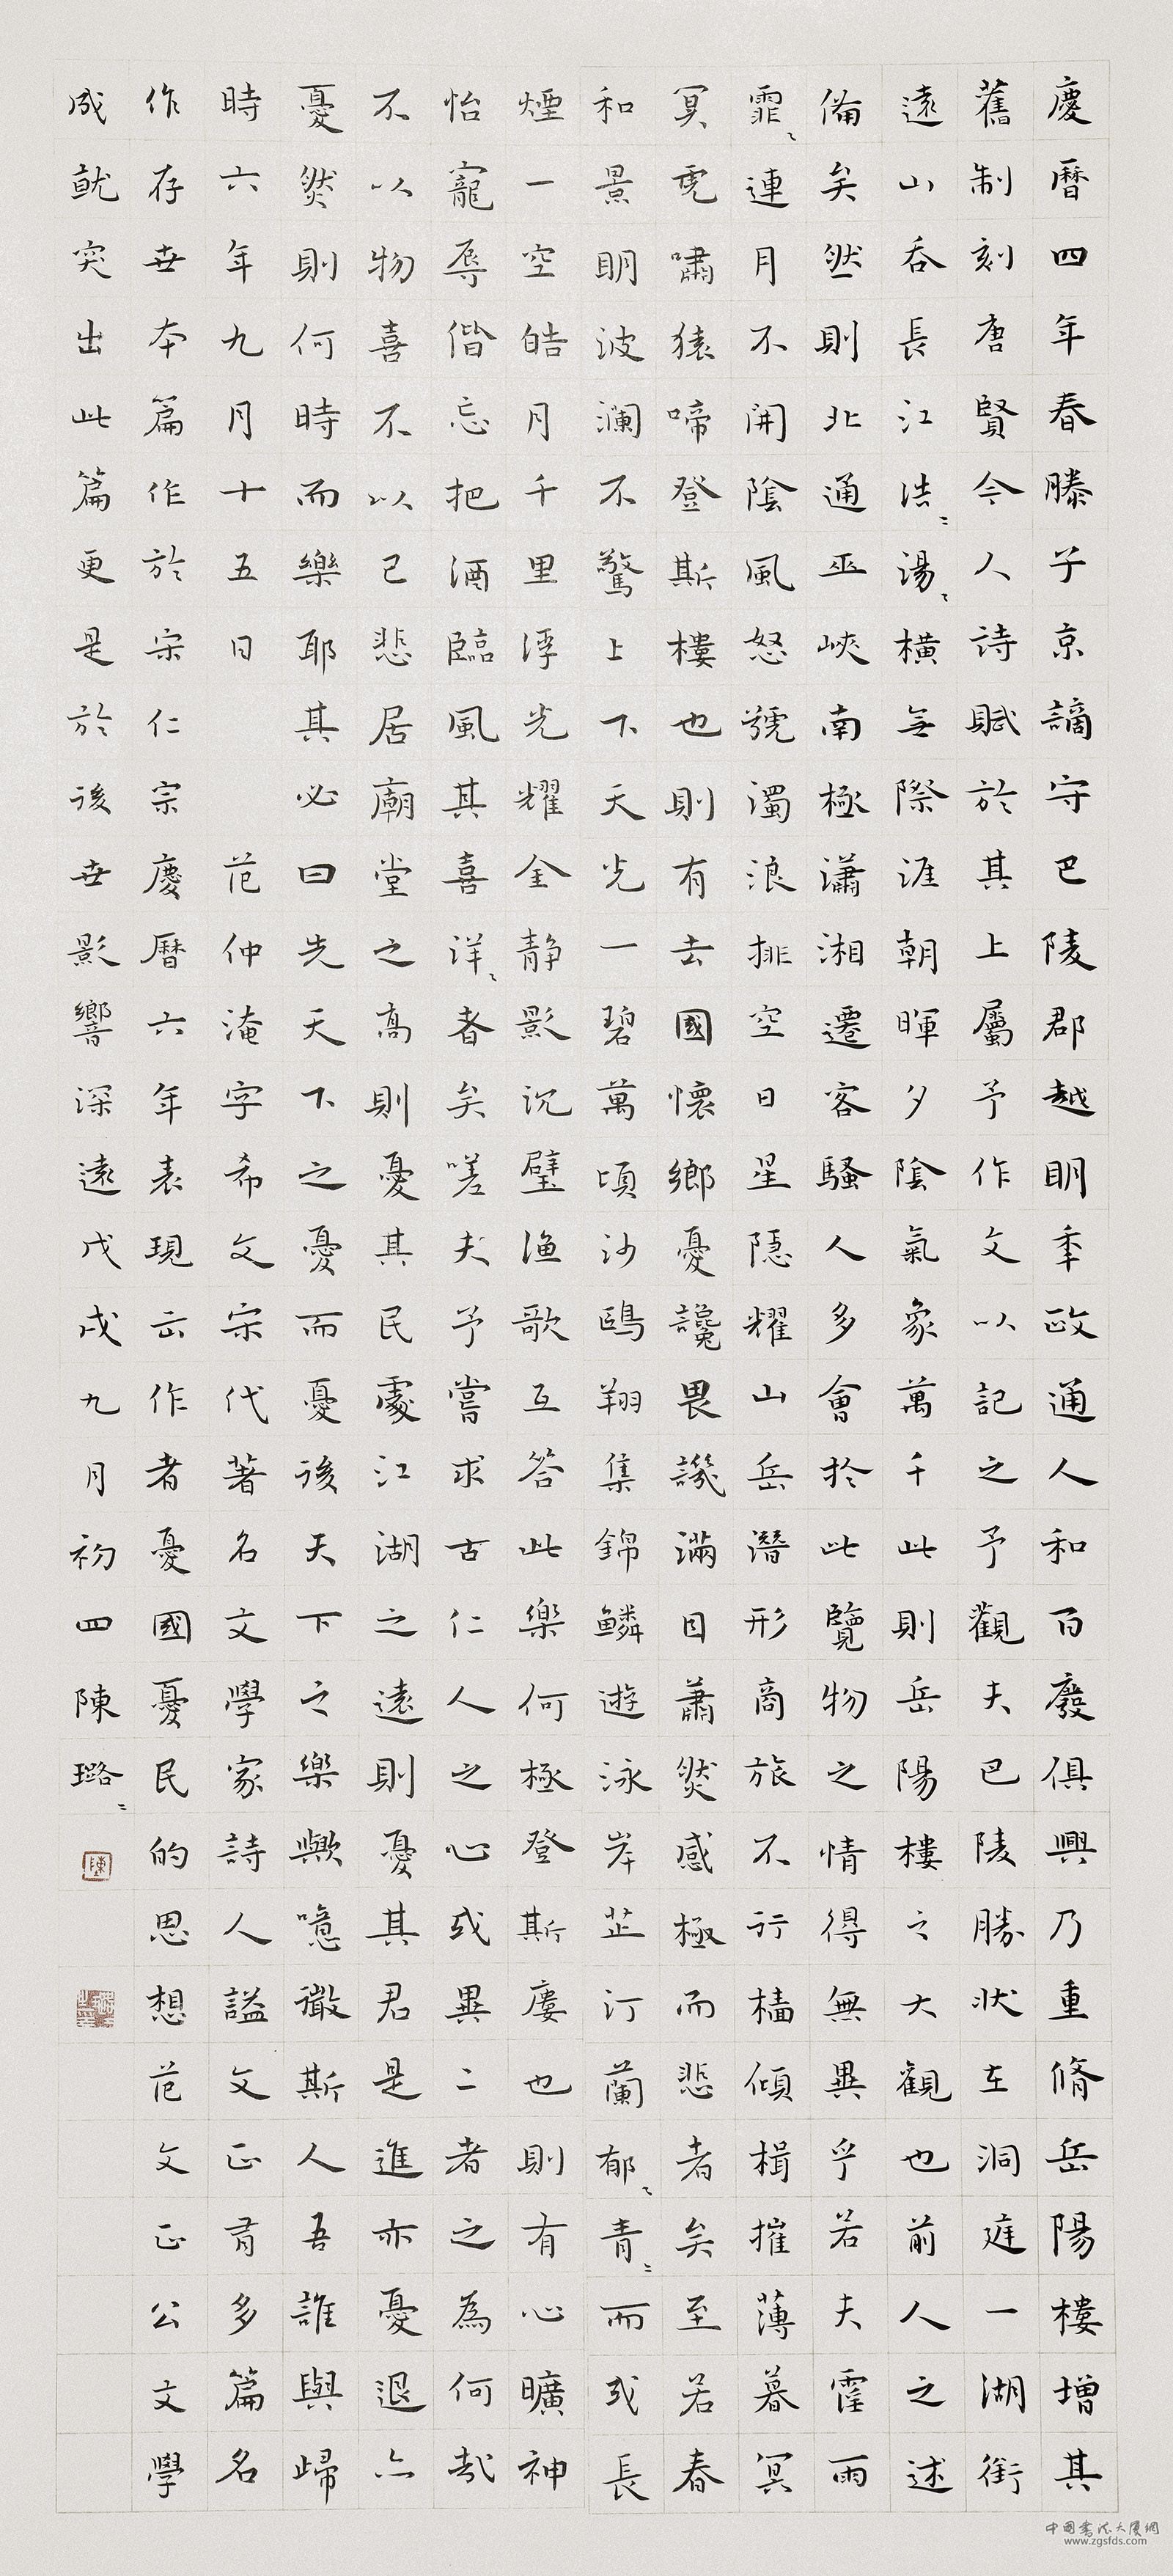 慶曆四年春滕子京謫守巴陵郡越明秊政通人和百廢俱興乃重脩岳陽樓增其
舊制刻唐賢今人詩賦於其上屬予作文以記之予觀夫巴陵勝狀在洞庭一湖銜
遠山吞長江浩〻湯〻橫無際涯朝暉夕陰氣象萬千此則岳陽樓之大觀也前人之述
備矣然則北通巫峽南極瀟湘遷客騷人多會於此覽物之情得無異乎若夫霪雨
霏〻連月不開陰風怒號濁浪排空日星隱耀山岳潛形商旅不行檣傾楫摧薄暮冥
冥虎嘯猿啼登斯樓也則有去國懷鄉憂讒畏譏滿目蕭然感極而悲者矣至若春
和景明波瀾不驚上下天光一碧萬頃沙鷗翔集錦鱗遊泳岸芷汀蘭郁〻青〻而或長
煙一空皓月千里浮光耀金静影沉璧漁歌互答此樂何極登斯廔也則有心曠神
怡寵辱偕忘把酒臨風其喜洋〻者矣嗟夫予嘗求古仁人之心或異二者之為何哉
不以物喜不以己悲居廟堂之高則憂其民處江湖之遠則憂其君是進亦憂退亦
憂然則何時而樂耶其必曰先天下之憂而憂後天下之樂歟噫微斯人吾誰與歸
時六年九月十五日 范仲淹字希文宋代著名文學家詩人謚文正有多篇名
作存世本篇作於宋仁宗慶曆六年表現云作者憂國憂民的思想范文正公文學
成就突出此篇更是於後世影響深遠戊戌九月初四陳璐〻
陳
中國書法大廈網
www.zgsfds.com